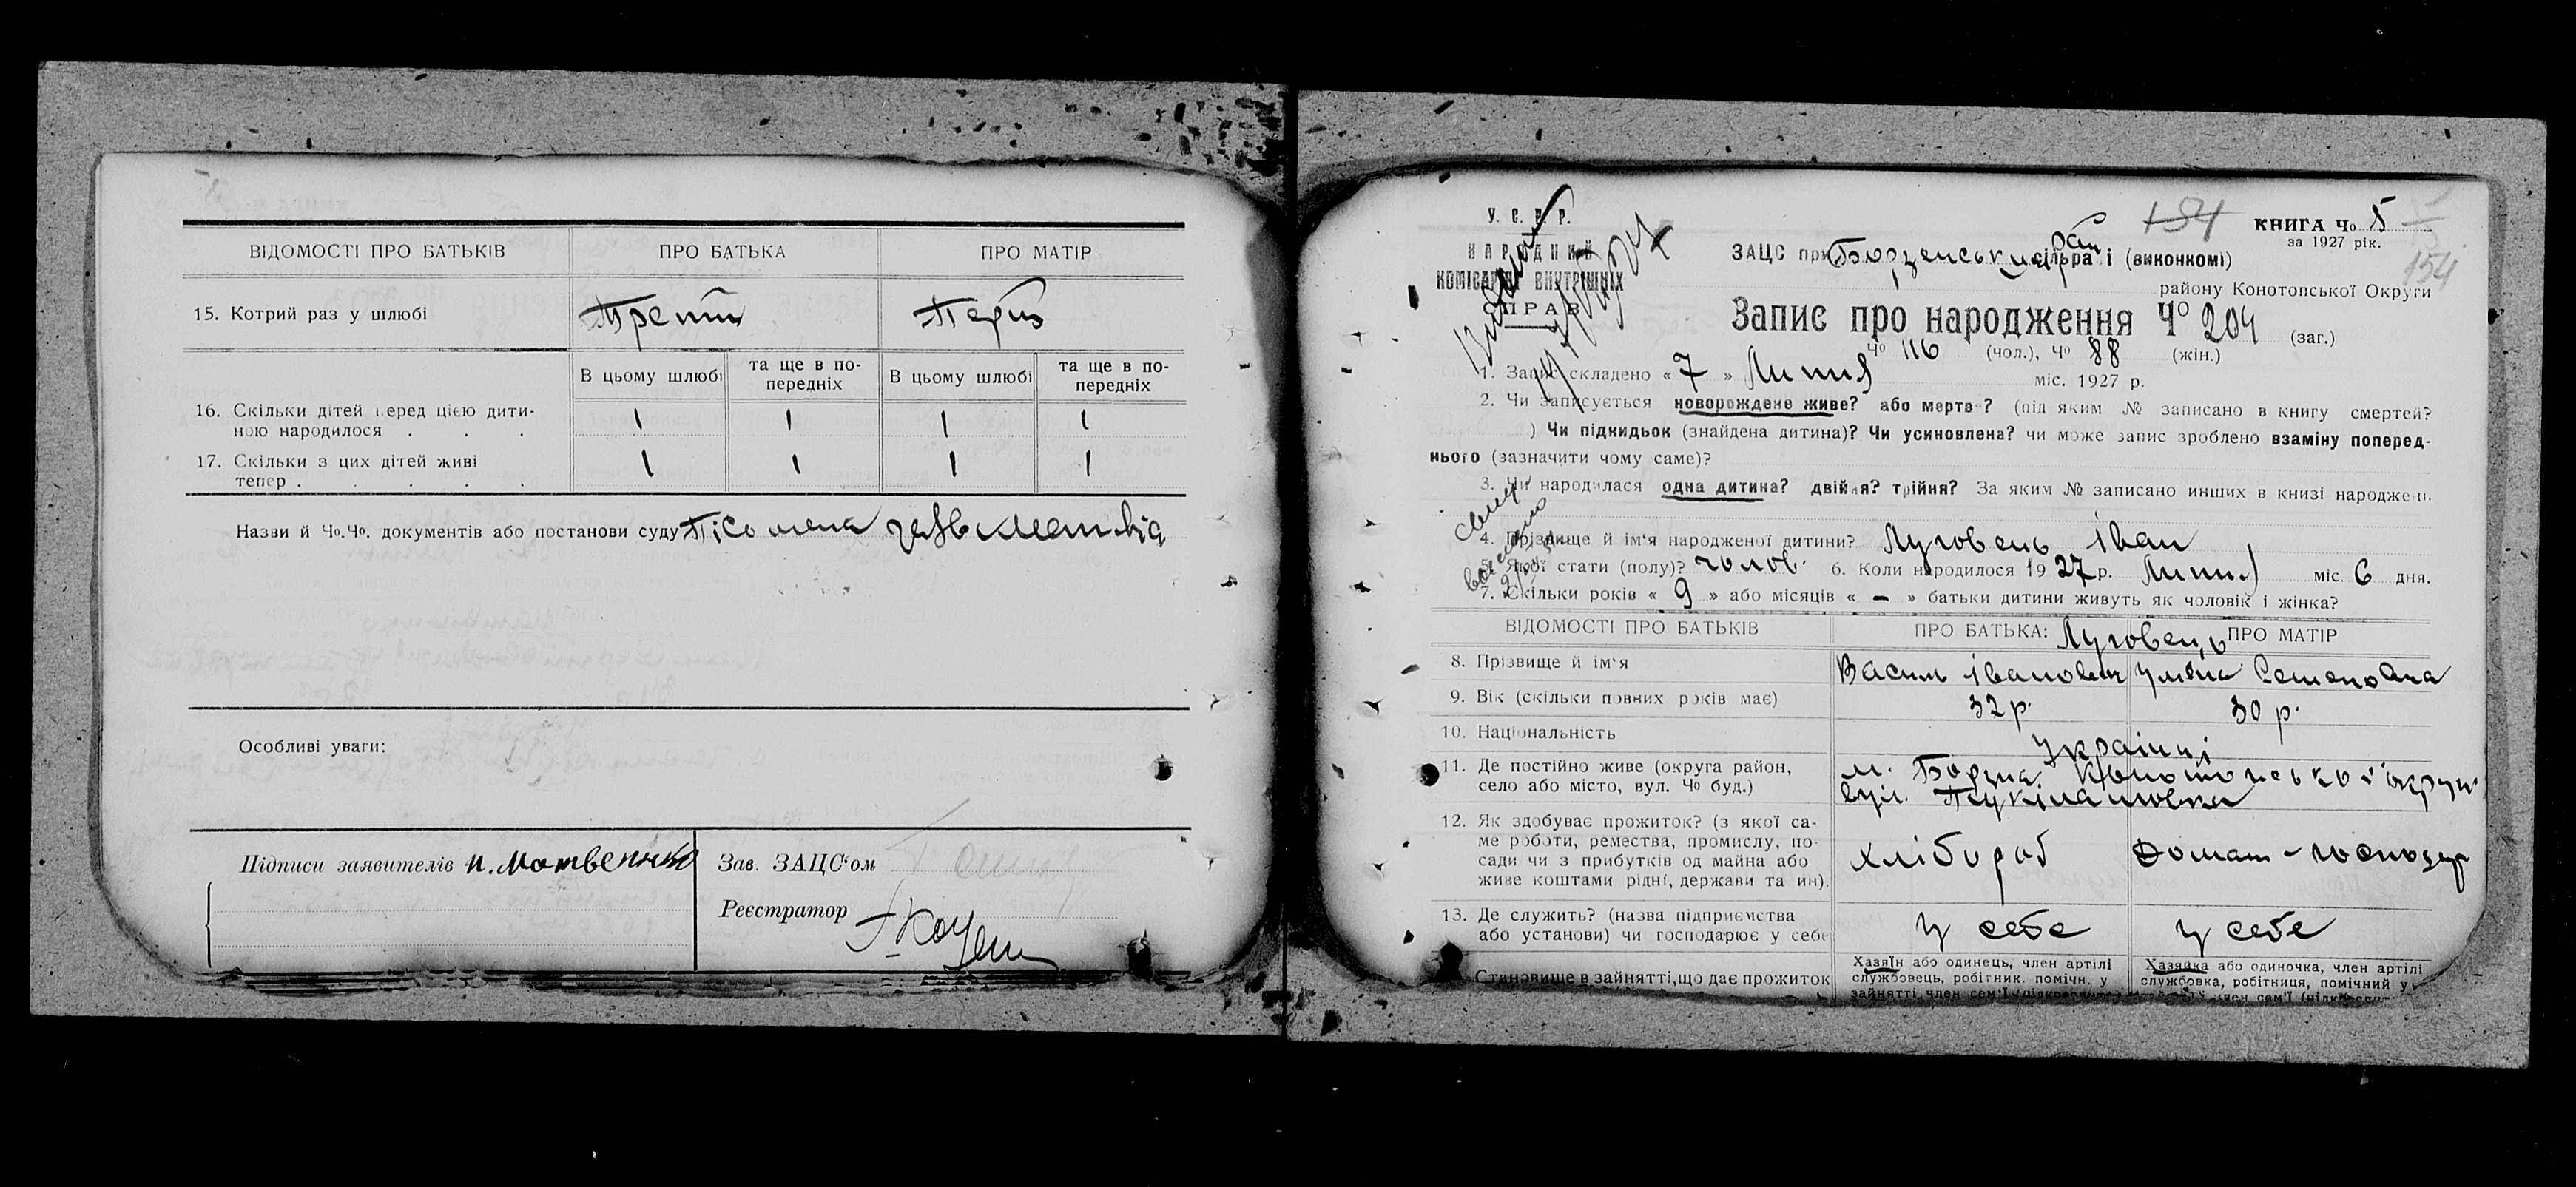 ВІДОМОСТІ ПРО БАТЬКІВ ПРО БАТЬКА ПРО МАТІР
15. Котрий раз у шлюбі
В цьому шлюбі та ще в по-передніх В цьому шлюбі та ще в по-передніх
16. Скільки дітей перед цією дити-
ною народилося . . . 1 1 1 1
17. Скільки з цих дітей живі
тепер . . . . . 1 1 1 1
Назви й Чо.Чо. документів або постанови суду
Особливі уваги:
Підписи заявителів П. Матвеенко
Зав. ЗАЦС'ом
Реєстратор
У. С. Р. Р.
НАРОДНИЙ
КОМІСАРІЯТ ВНУТРІШНІХ
СПРАВ
154 КНИГА Чо 5
за 1927 рік.
154
ЗАЦС при Борзенському рай сільраді (виконкомі)
району Конотопської Округи
Запис про народження Чо 204 (заг.)
Чо 116 (чол.), Чо 88 (жін.)
1. Запис складено « 7 » Липня міс. 1927 р.
2. Чи записується новорождене живе? або мертве? (під яким № записано в книгу смертей?
) Чи підкидьок (знайдена дитина)? Чи усиновлена? чи може запис зроблено взаміну поперед-
нього (зазначити чому саме)?
3. Чи народилася одна дитина? двійня? трійня? За яким № записано инших в книзі народжен.
4. Прізвище й ім'я народженої дитини? Луговець Іван
5. Якої стати (полу)? чолов. 6. Коли народилося 1927 р. Липня міс. 6 дня.
7. Скільки років « 9 » або місяців « – » батьки дитини живуть як чоловік і жінка?
ВІДОМОСТІ ПРО БАТЬКІВ ПРО БАТЬКА: Луговець ПРО МАТІР
8. Прізвище й ім'я Василь Іванович Уляна Семеновна
9. Вік (скільки повних років має) 32 р. 30 р.
10. Національність Українці
11. Де постійно живе (округа район,
село або місто, вул. Чо буд.)
м. Борзна Конотопської округи
вул.
12. Як здобуває прожиток? (з якої са-
ме роботи, ремества, промислу, по-
сади чи з прибутків од майна або
живе коштами рідні, держави та ин).
хлібороб Домаш-господар
13. Де служить? (назва підприємства
або установи) чи господарює у себе
у себе у себе
Становище в зайнятті, що дає прожиток
Хазяїн або одинець, член артілі
службовець, робітник, помічн. у
Хазяйка або одиночка, член артілі
службовка, робітниця, помічний у